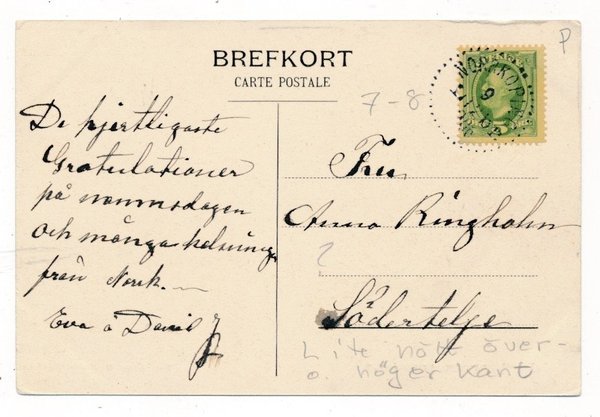 BREFKORT
CARTE POSTALE
P
7-8
NORRKÖPING
De hjertligaste
Gratulationer
på namnsdagen
och många helsninga
från Norrk.
Eva o David
Fru
Anna Ringholm
Södertelge
?
Lite nött över-
o. höger kant